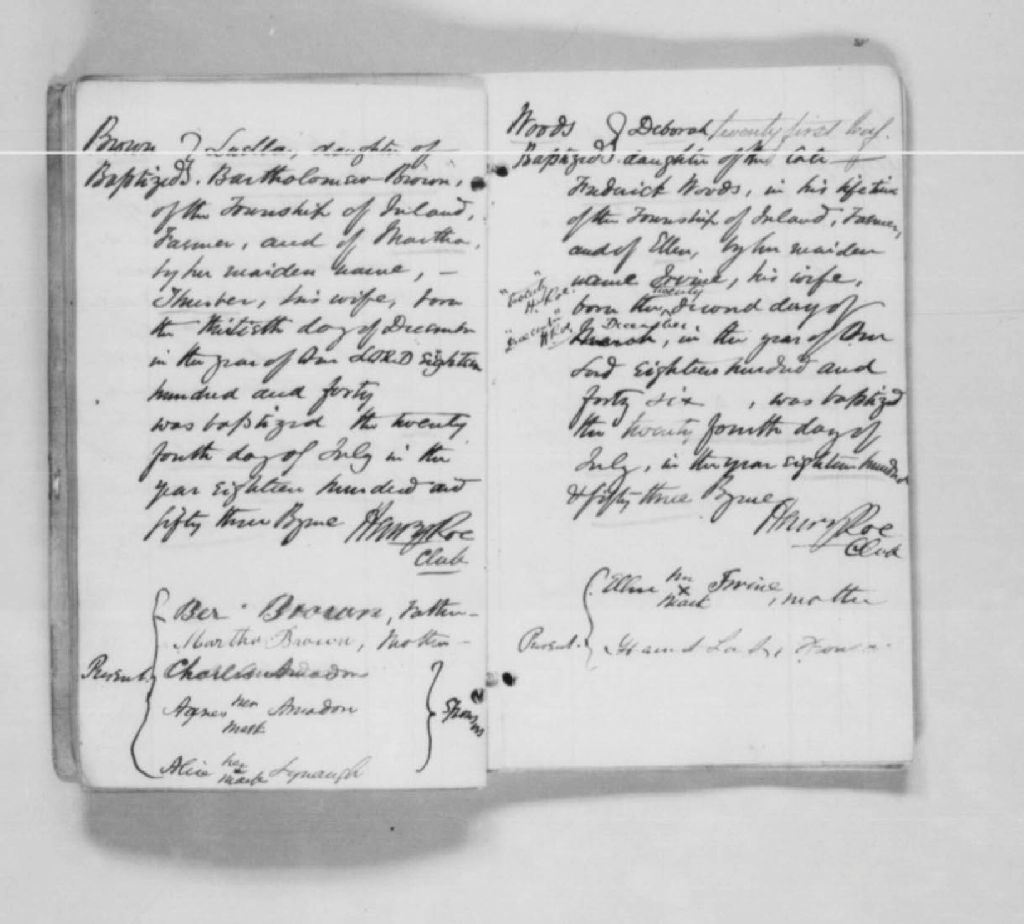 Brown } Luella, daughter of
Baptized. Bartholomew Brown,
of the Township of Inland,
Farmer, and of Martha,
by her maiden name, –
Thurber, his wife, born
the thirtieth day of December
in the year of Our LORD Eighteen
hundred and forty
was baptized the twenty
fourth day of July in the
year Eighteen hundred and
fifty three By me Henry Roe
Clerk
Ber Brown, Father –
Martha Brown, Mother –
Present. Charles Amadon
Agnes her mark Amadon
Sponsors
Alice her mark Lynaugh
Woods } Deborah, twenty first leaf.
Baptized. daughter of the late
Frederick Woods, in his lifetime
of the Township of Inland, Farmer,
and of Ellen, by her maiden
name Irvine, his wife,
"twenty" H. Roe.
born the twenty second day of
"December" H. R.
March, December, in the year of Our
Lord Eighteen hundred and
forty six , was baptized
the twenty fourth day of
July, in the year Eighteen hundred
& fifty three By me
Henry Roe
Clerk
Ellen her x mark Irvine, mother
Present.